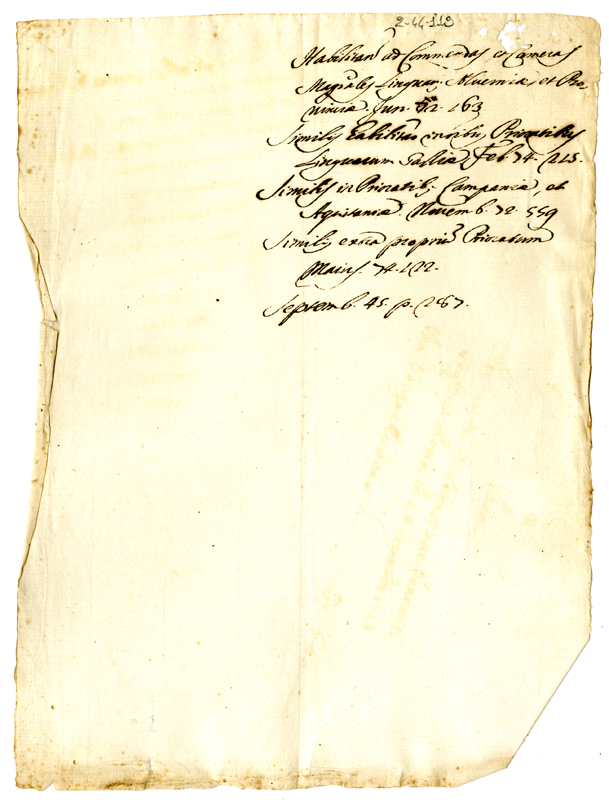 2-44-119
Habilitan. ad Commendas et Cameras
Magrales Linguar. Alverniæ, et Pro
vinciæ. Jun. 72. 163
Similis habilitao in oibus Prioratibus
Linguarum Galliæ, Feb. 74. 225.
Similis in Prioratib. Campaniæ, et
Aquitaniæ. Novemb. 72. 559
Similis extra proprium Prioratum
Maius. 74. 122.
Septemb. 45. p. 287.